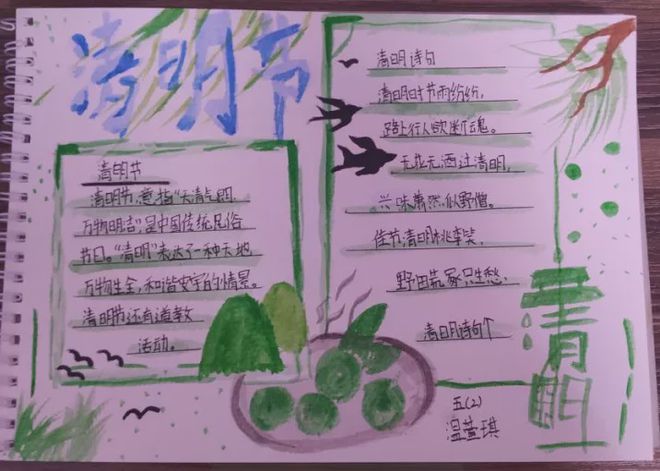 清明节
清明节
清明节,意指“天清气明,
万物明洁”是中国传统民俗
节日。“清明”表达了一种天地
万物生全,和谐安宁的情景。
清明节还有道教
活动。
清明诗句
清明时节雨纷纷,
路上行人欲断魂。
无花无酒过清明,
兴味萧然似野僧。
佳节清明桃李笑,
野田荒冢只生愁,
清明诗句
清明
五(2)
温萱琪